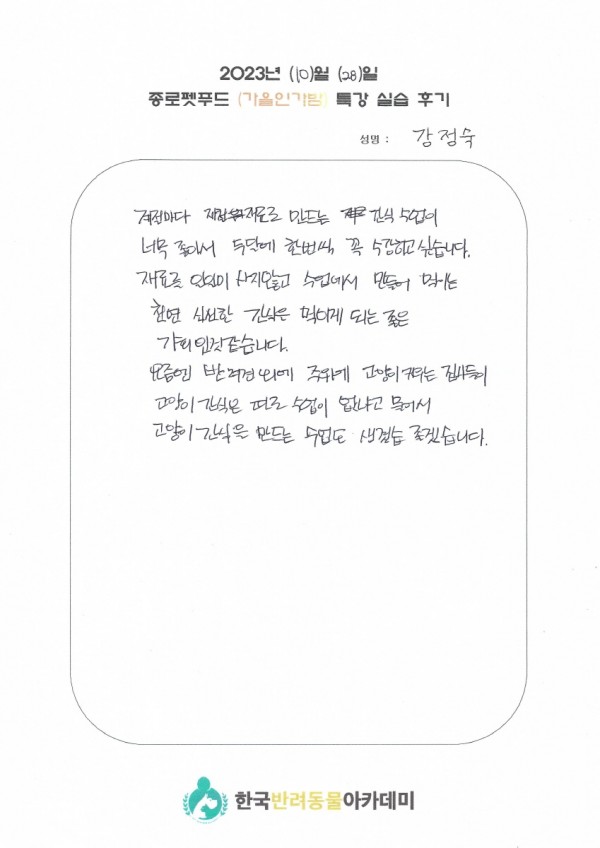 2023년 (10)월 (28)일
종로펫푸드 (가을인가밤) 특강 실습 후기
성명 : 강정숙
계절마다 재료로 만드는 간식 수업이
너무 좋아서 두달에 한번씩 꼭 수강하고 싶습니다.
재료를 사지않고 수업에서 만들어 먹이는
천연 신선한 간식은 먹이게 되는 좋은
같습니다.
요즘엔 반려견 외에 주위에 고양이 키우는 집사들이
고양이 간식은 따로 수업이 없냐고 물어서
고양이 간식을 만드는 수업도 좋겠습니다.
한국반려동물아카데미